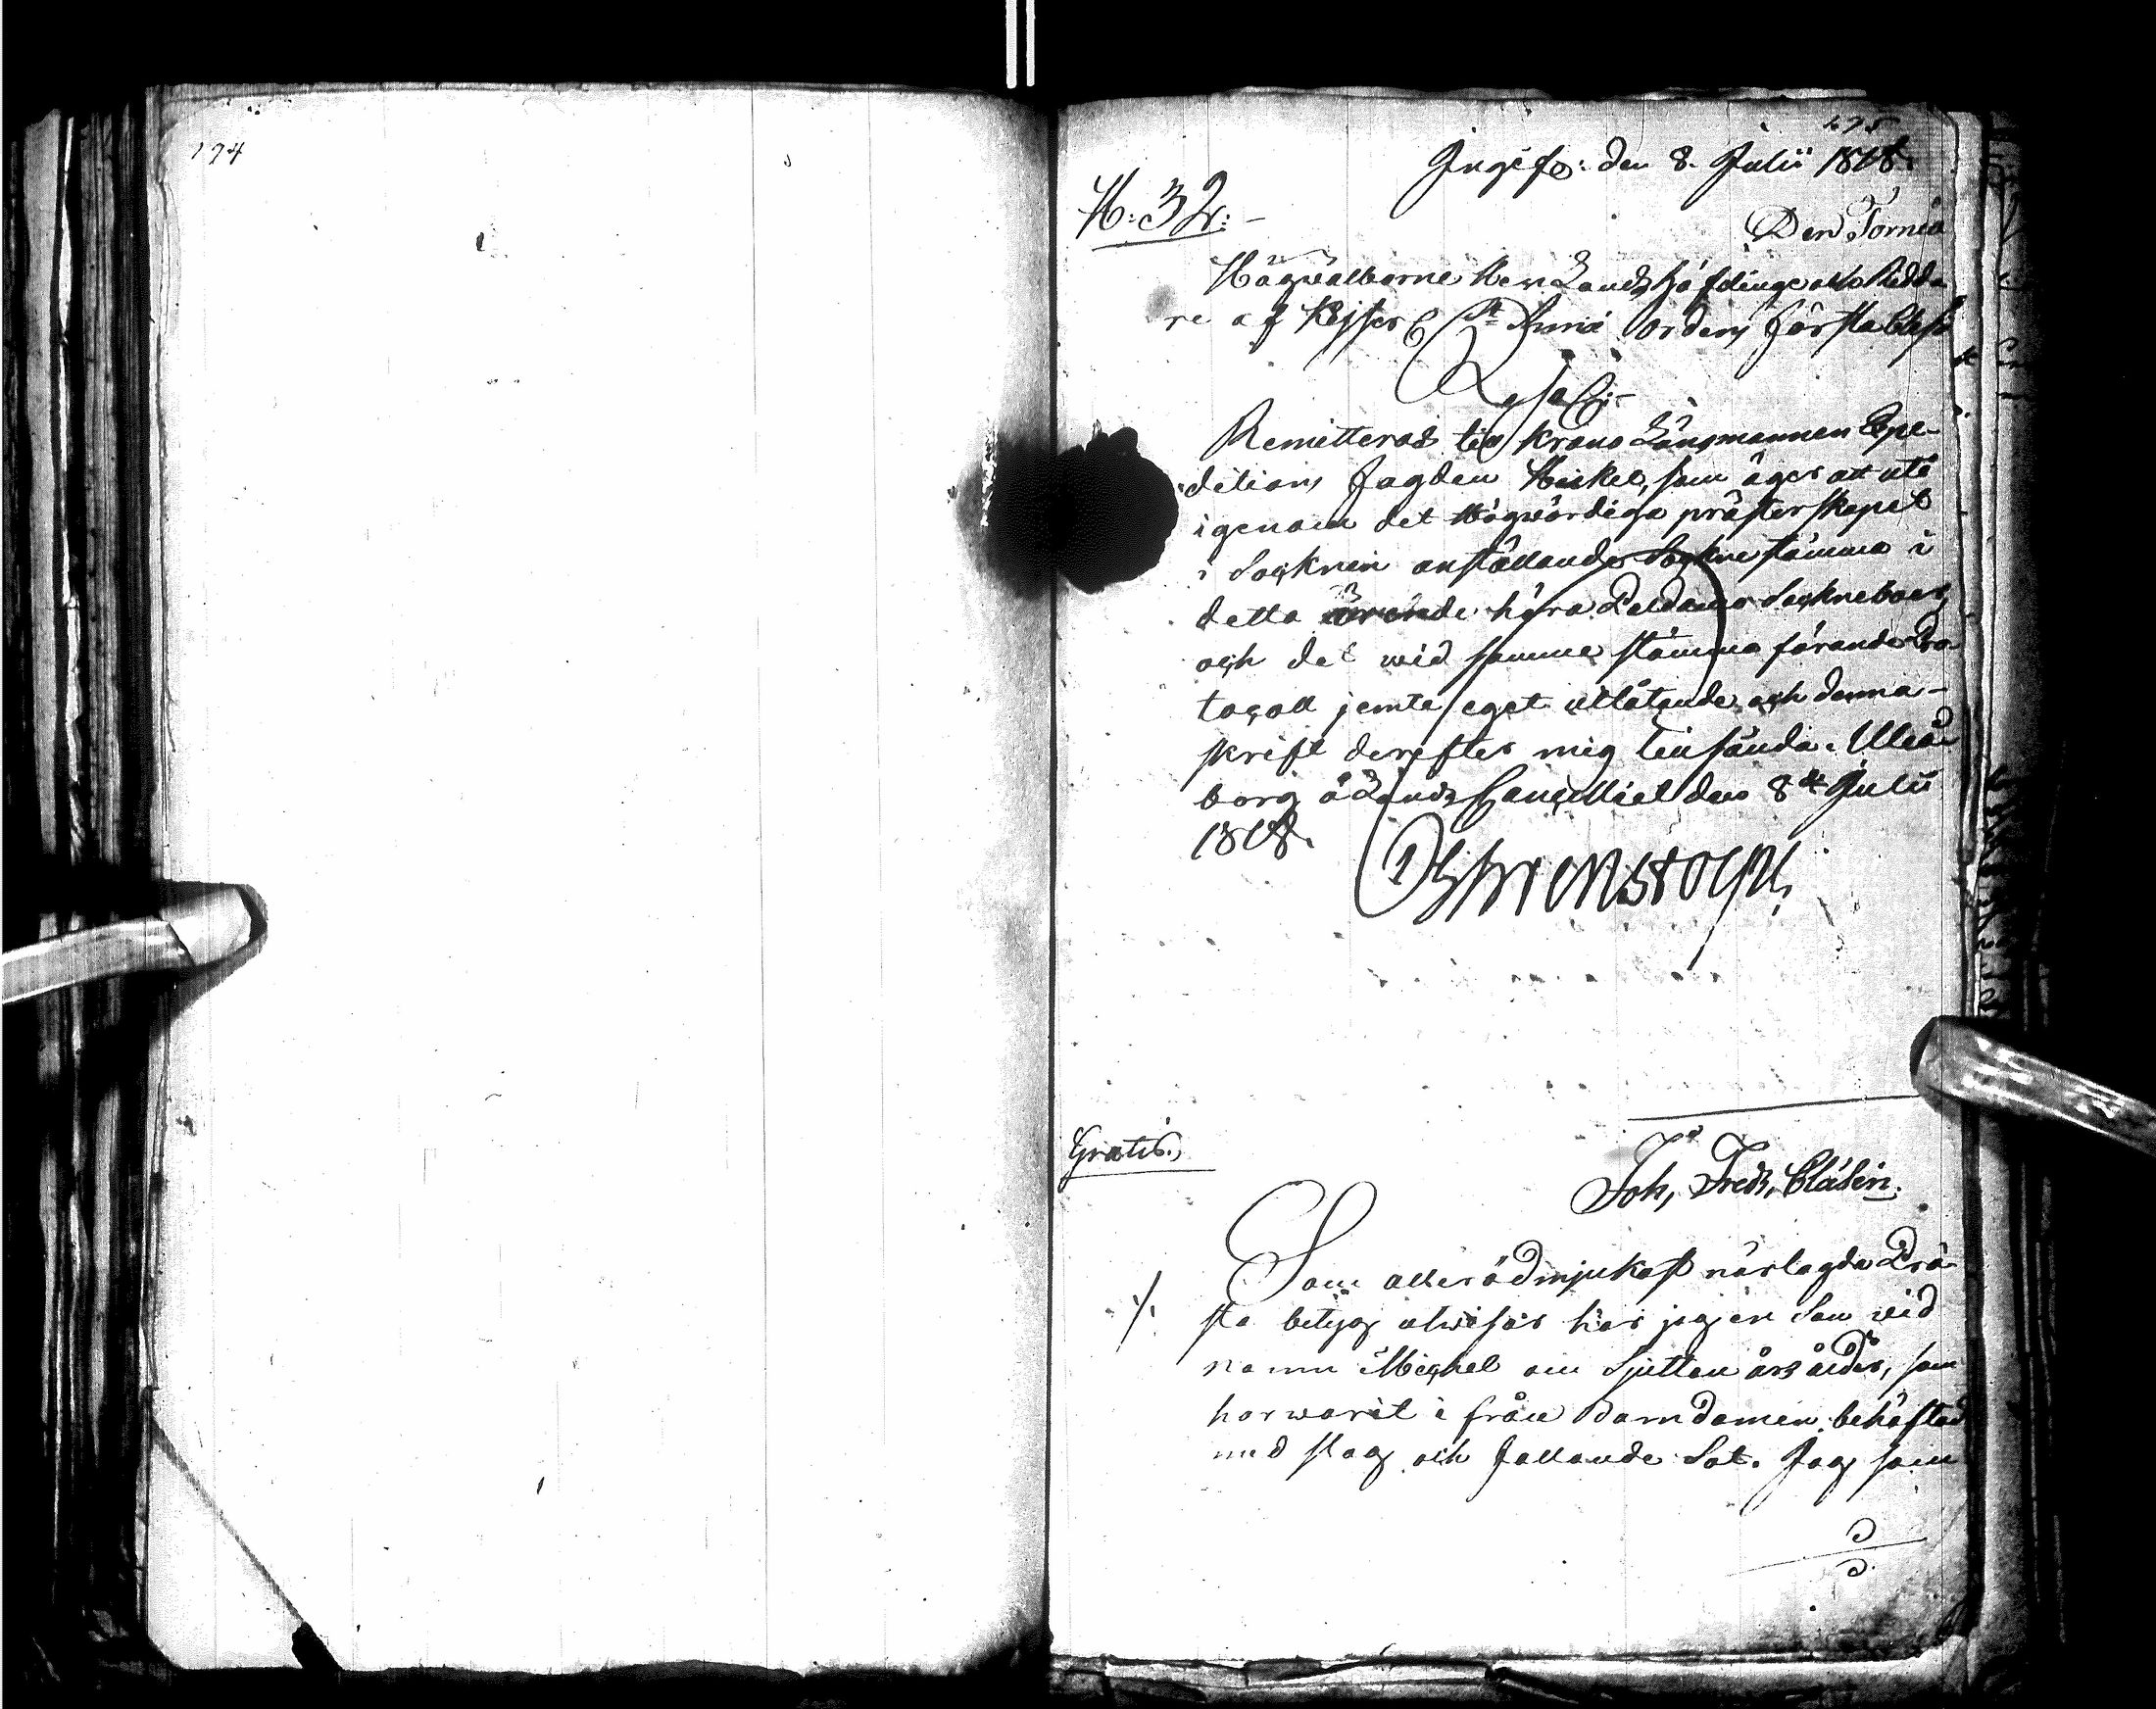 194
195
Ingifv: den 8. Julii 1818.
N: 32:-
Den Torneå
Högvälborne Herr Landshöfdinge och Ridda-
re af Kejserl St Annæ Ordens första Class
Remitteras till Krono Länsmannen Expe-
ditions Fogden Heikel, som äger att utö
igenom det Högvördiga prästerskapet
i Socknen anställande Sockne stämma i
detta ärende höra Paldamo Sockneboer,
och det wid samma stämma förande Pro-
tocoll jemte eget utlåtande och denna
skrift derefter mig tillsända. Uleå-
borg å Lands Cancelliet den 8de Julii
1818.
Ehrenstolpe
Gratis.
Joh, Fredr, Clásén.
Som allerödmjukast närlagda Prä-
./. sta betyg utwisar har jag en Son wid
namn Michel om Sjutton års ålder, som
har warit i från Barndomen behäftad
med slag och fallande Sot. Jag som